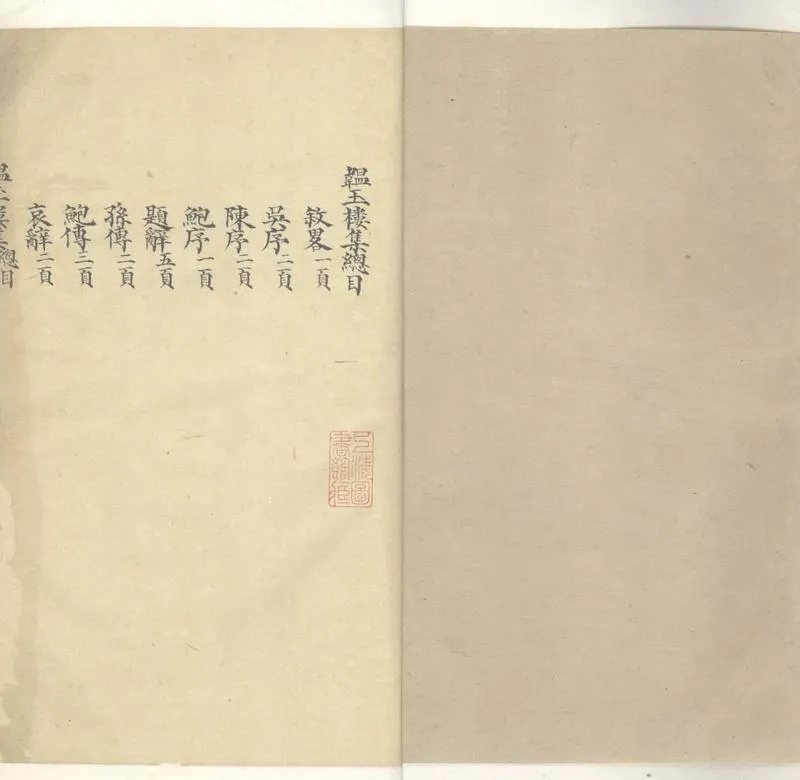 韞玉樓集總目
敘畧一頁
吳序二頁
陳序二頁
鮑序一頁
題辭五頁
孫傳二頁
鮑傳二頁
哀辭二頁